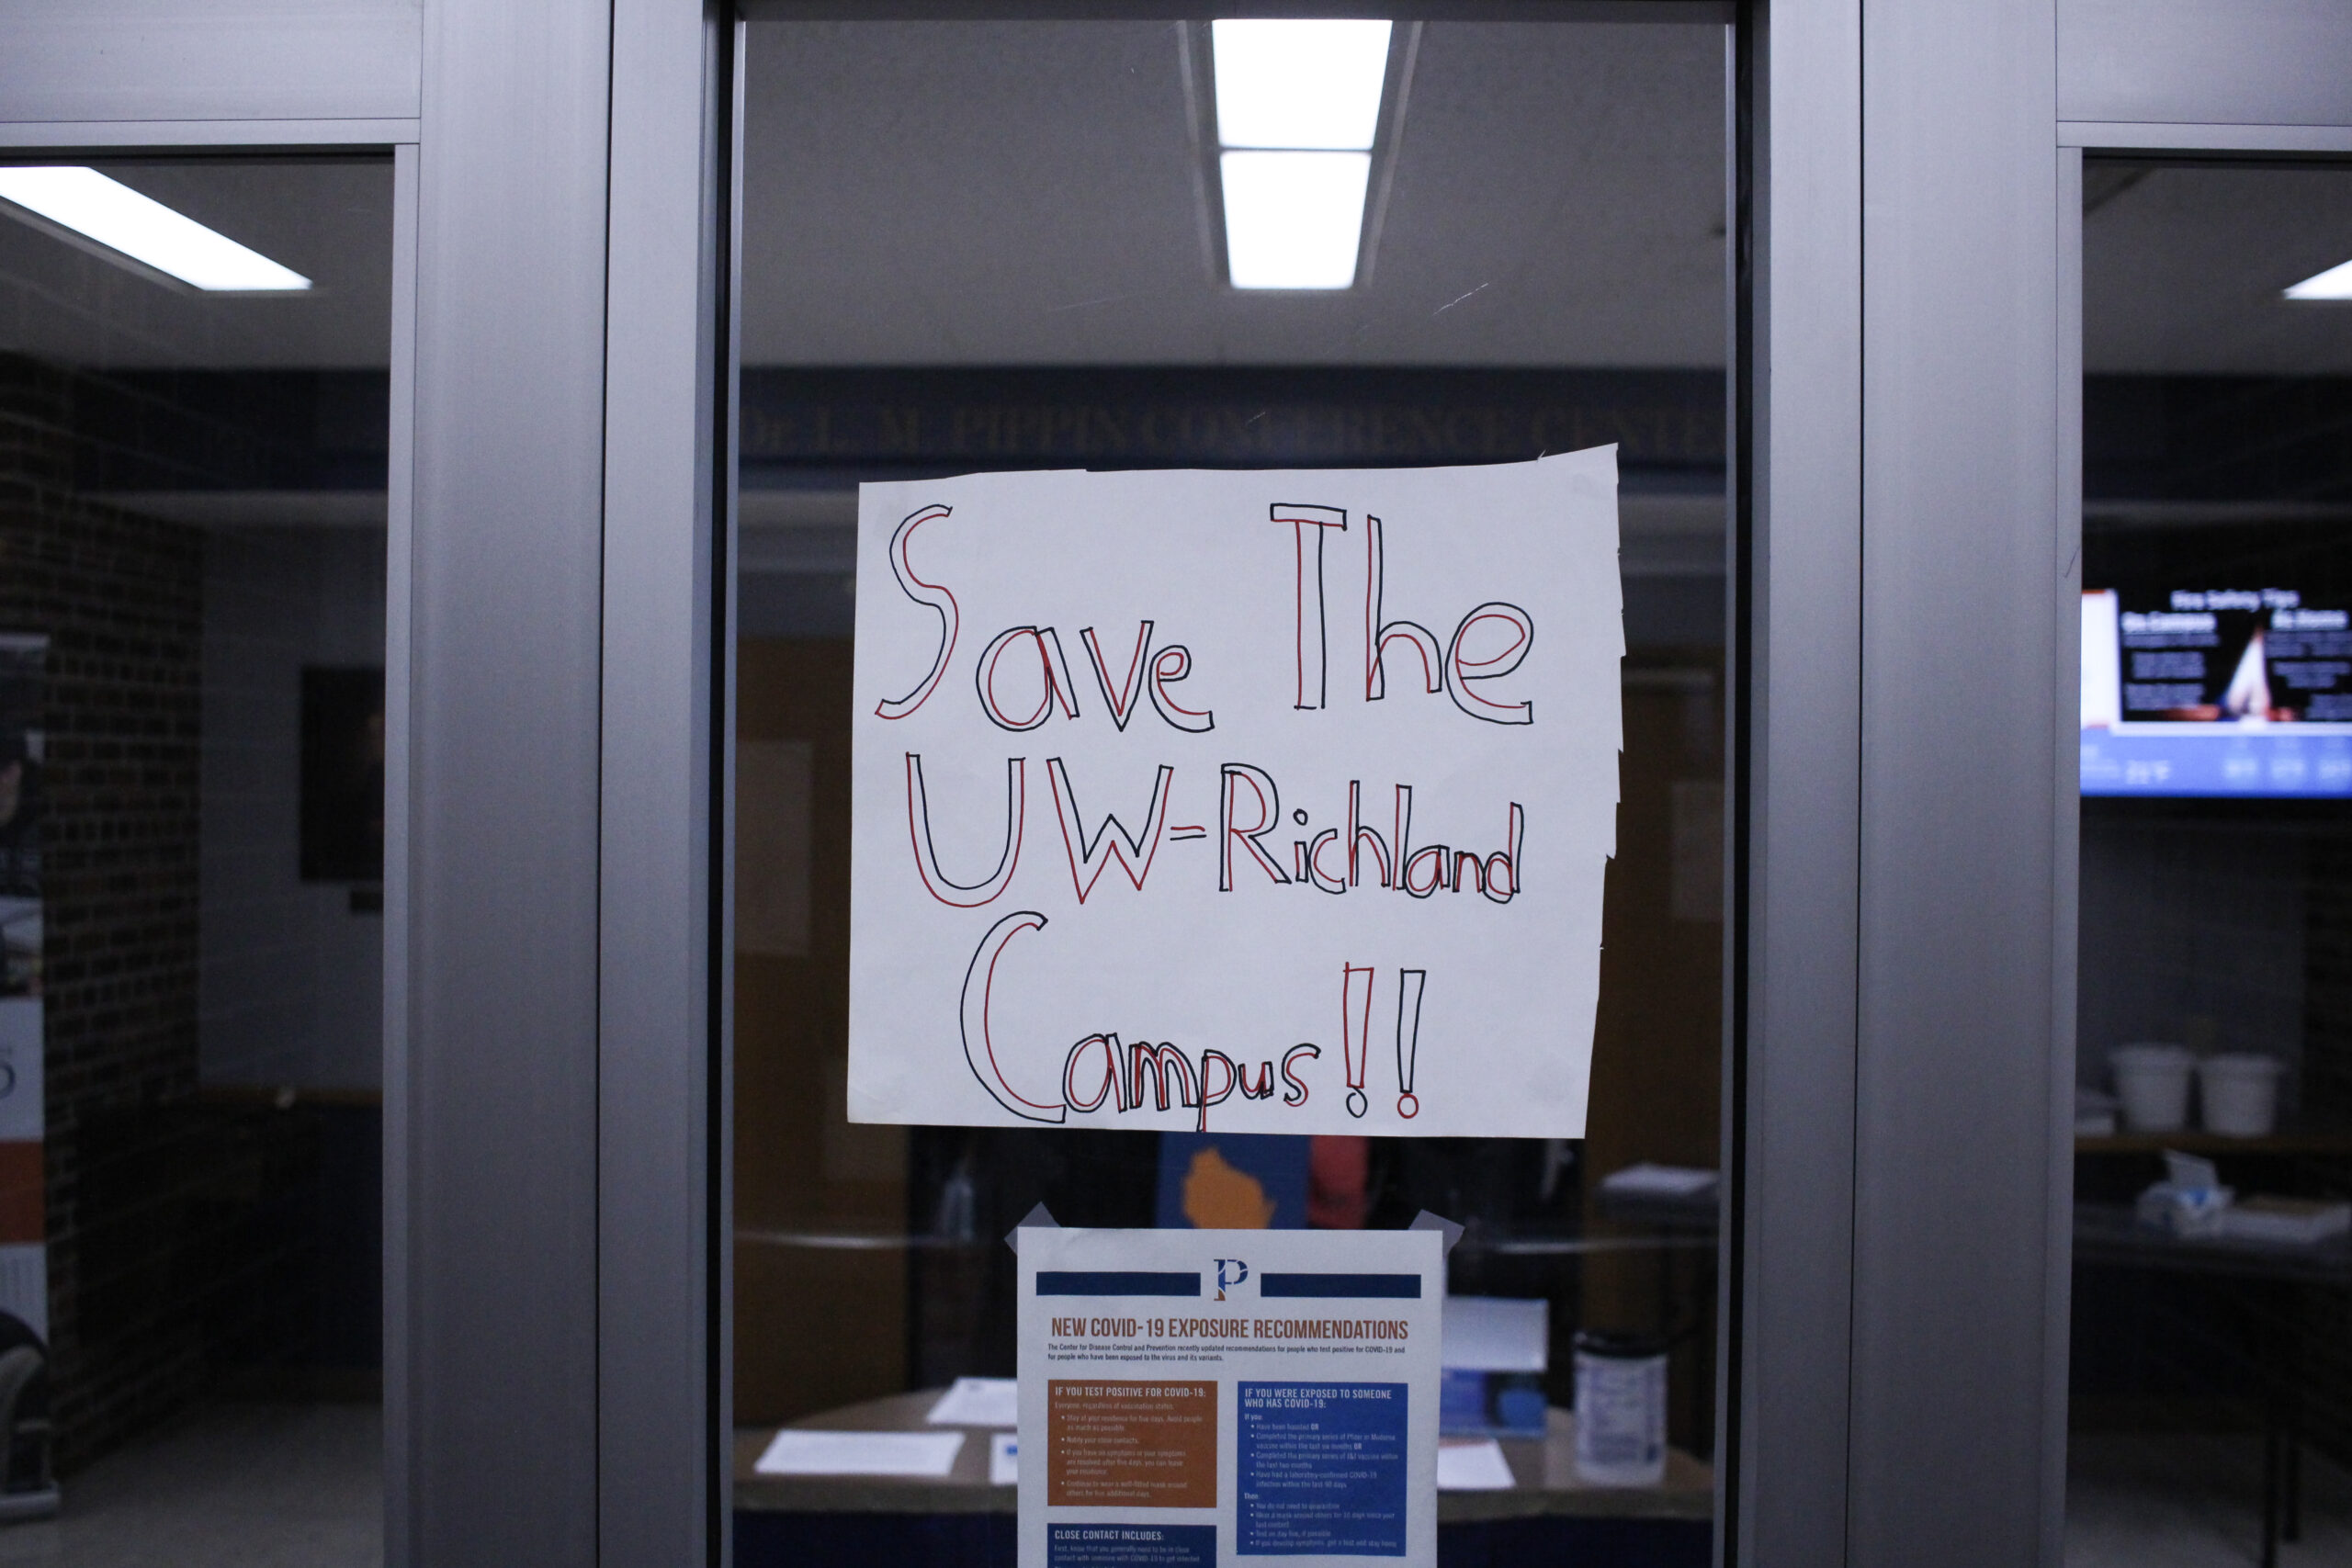 Dr. L. M. PIPPIN CONFERENCE CENTE
Save The
UW-Richland
Campus!!
Fire Safety Tips
On Campus
At Home
P
NEW COVID-19 EXPOSURE RECOMMENDATIONS
The Center for Disease Control and Prevention recently updated recommendations for people who test positive for COVID-19 and
for people who have been exposed to the virus and its variants.
IF YOU TEST POSITIVE FOR COVID-19:
Everyone, regardless of vaccination status.
• Stay at your residence for five days. Avoid people
as much as possible.
• Notify your close contacts.
• If you have no symptoms or your symptoms
are resolved after five days, you can leave
your residence.
• Continue to wear a well-fitted mask around
others for five additional days.
CLOSE CONTACT INCLUDES:
First, know that you generally need to be in close
contact with someone with COVID-19 to get infected.
IF YOU WERE EXPOSED TO SOMEONE
WHO HAS COVID-19:
If you:
• Have been boosted OR
• Completed the primary series of Pfizer or Moderna
vaccine within the last six months OR
• Completed the primary series of J&J vaccine within
the last two months
• Have had a laboratory-confirmed COVID-19
infection within the last 90 days
Then:
• You do not need to quarantine
• Wear a mask around others for 10 days since your
last contact
• Test on day five, if possible
• If you develop symptoms, get a test and stay home